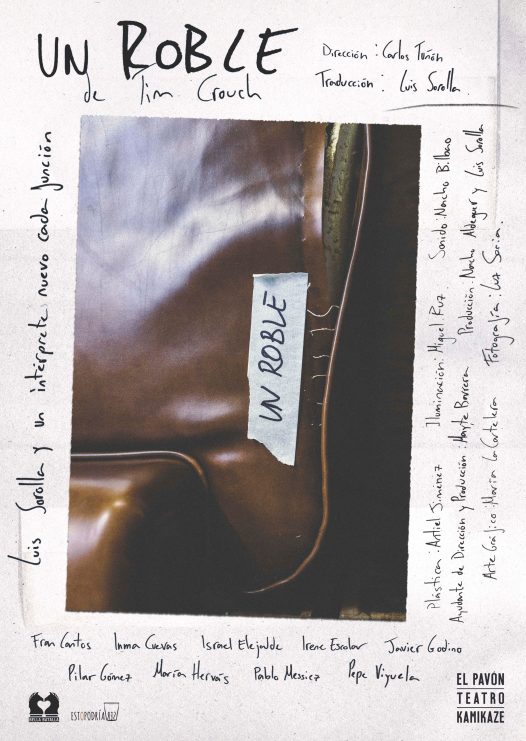 UN ROBLE
de Tim Crouch
Dirección: Carlos Tuñón
Traducción: Luis Sorolla
Luis Sorolla y un intérprete nuevo cada función
UN ROBLE
Plástica: Antiel Jiménez Iluminación: Miguel Ruz Sonido: Nacho Bilbao
Ayudante de Dirección y Producción: Mayte Barrera Producción: Nacho Aldeguer y Luis Sorolla
Arte Gráfico: María La Cartelera Fotografía: Luz Soria.
Fran Cantos Inma Cuevas Israel Elejalde Irene Escolar Javier Godino
Pilar Gómez María Hervás Pablo Messiez Pepe Viyuela
BELLA BATALLA
ESTOPODRÍASER
EL PAVÓN
TEATRO
KAMIKAZE